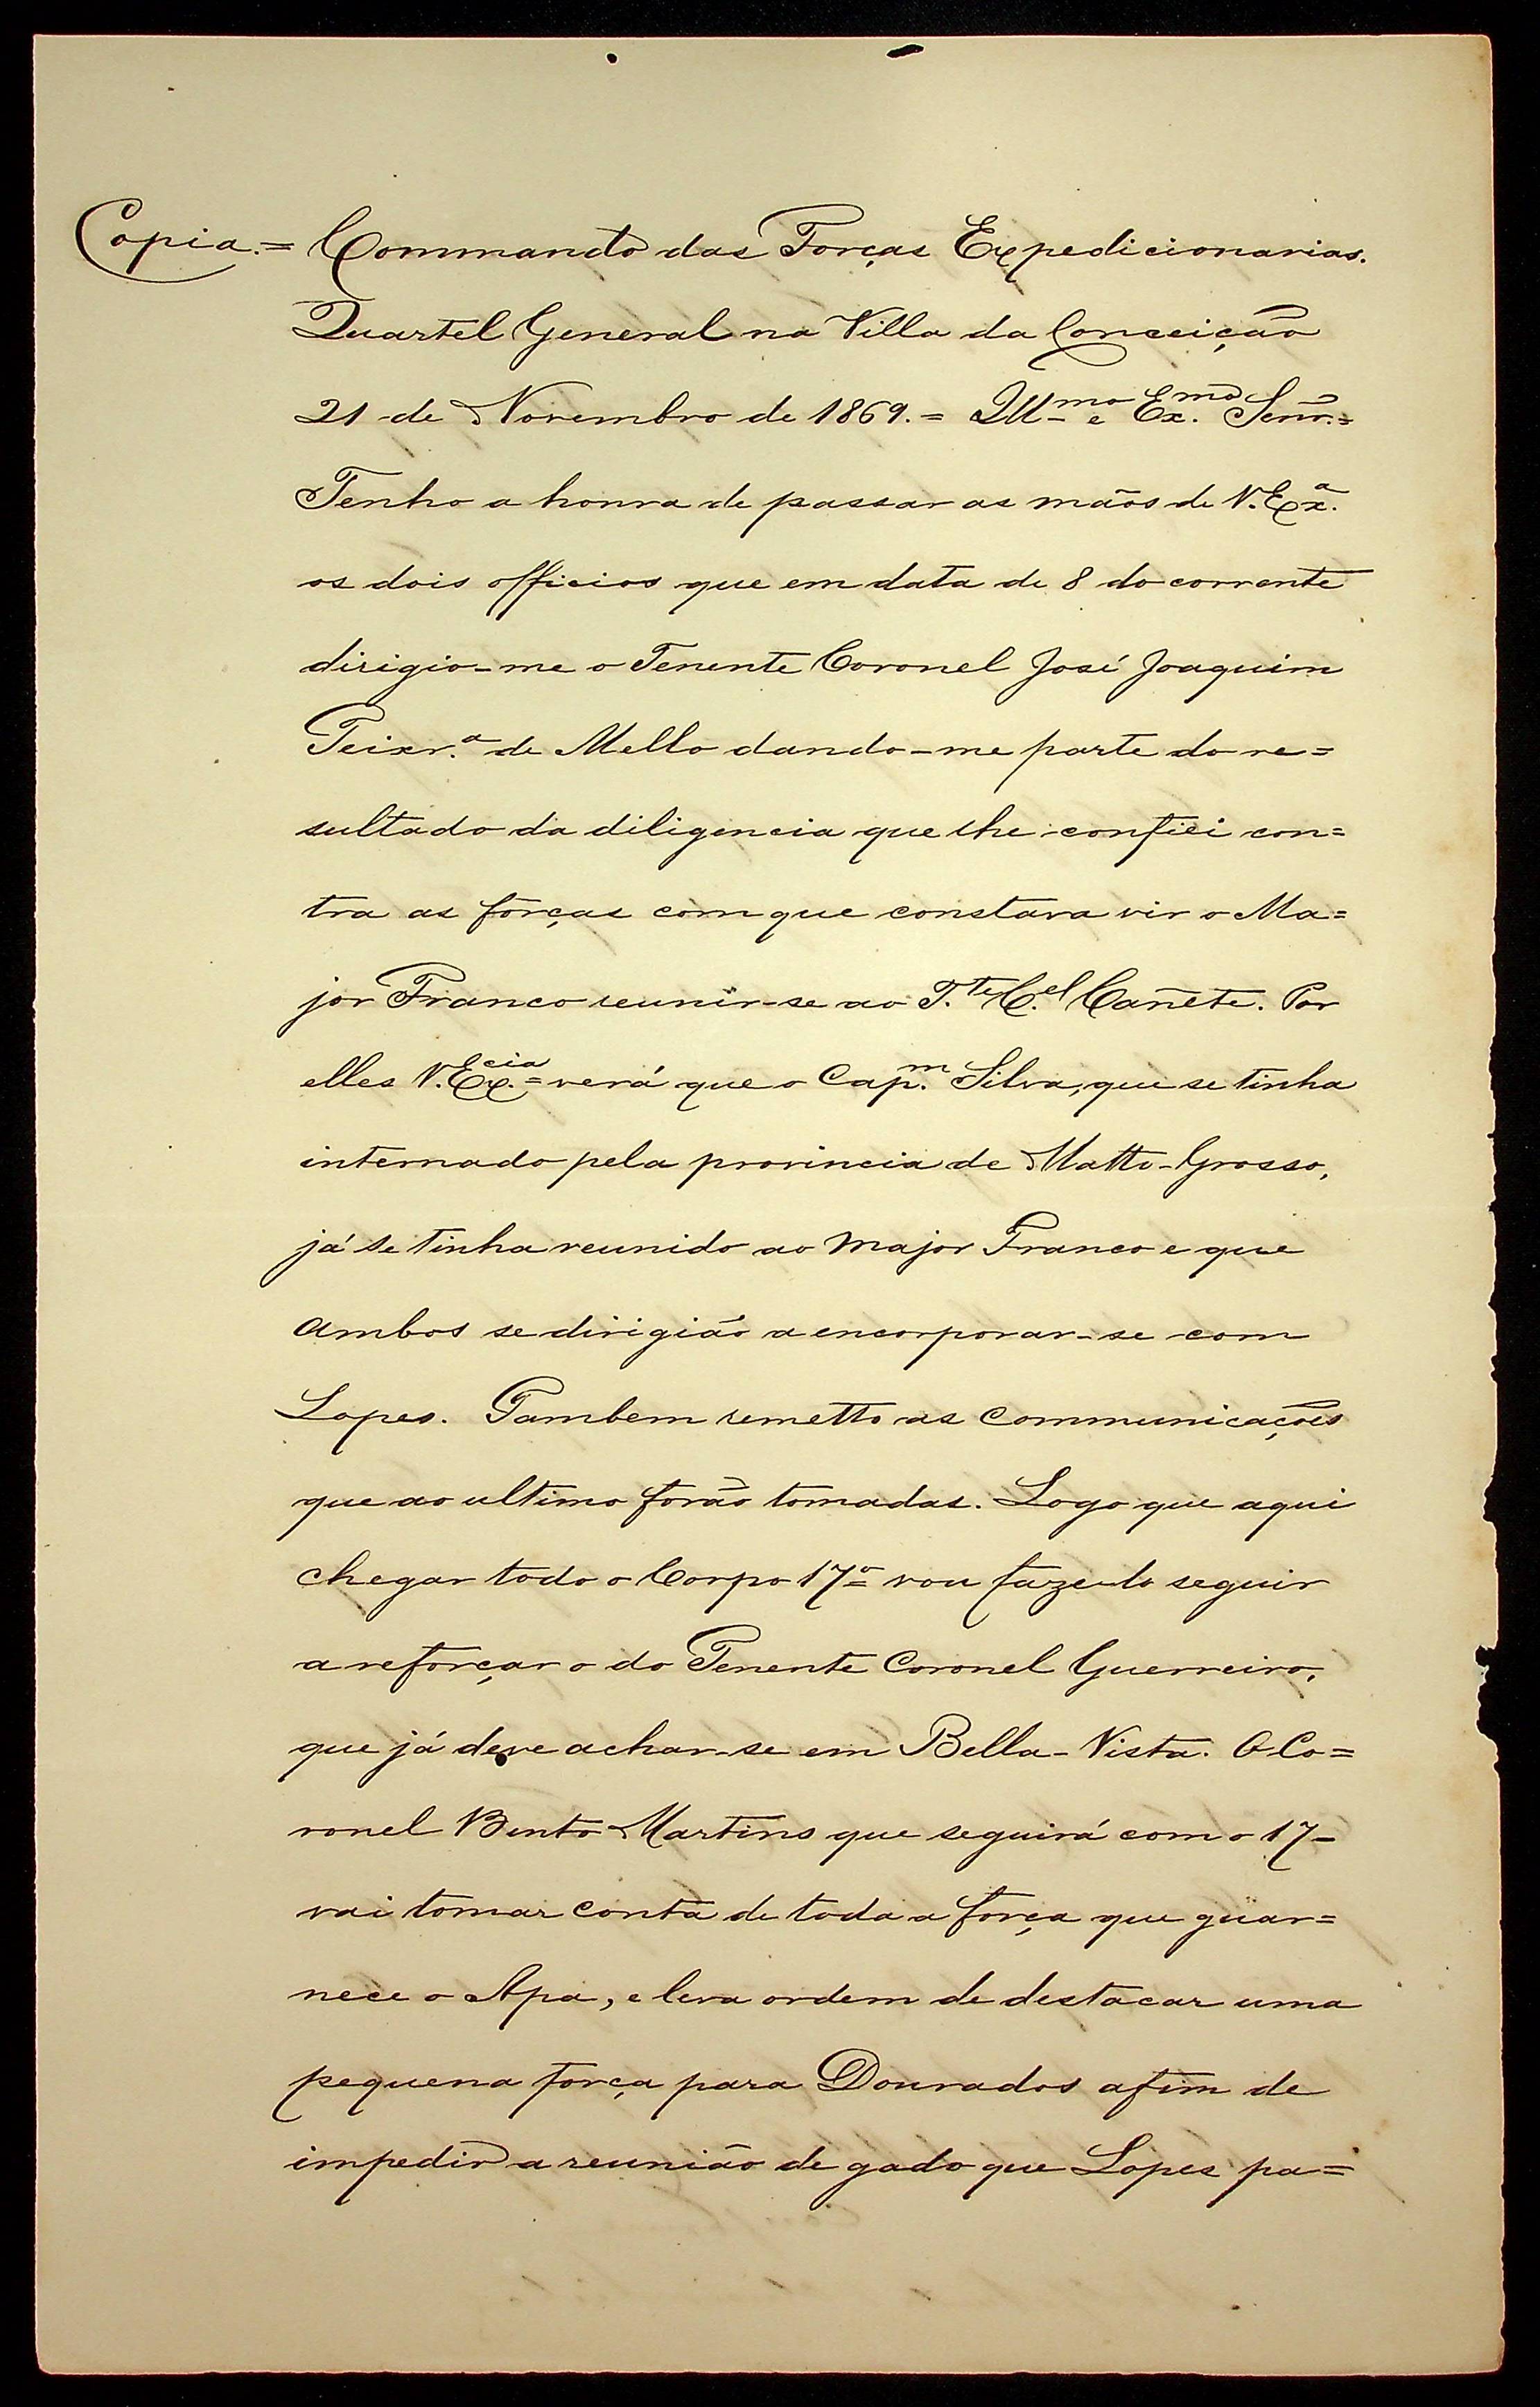 Copia.= Commando das Forças Expedicionarias.
Quartel General na Villa da Conceição
21 de Novembro de 1869.= Illmo e Exmo Senr.=
Tenho a honra de passar as mãos de V. Exa.
os dois officios que em data de 8 do corrente
dirigio-me o Tenente Coronel José Joaquim
Teixr.a de Mello dando-me parte do re=
sultado da diligencia que lhe confiei con=
tra as forças com que constava vir o Ma=
jor Franco reunir-se ao T.te C.el Cañete. Por
elles V. Excia= verá que o Cap.m Silva, que se tinha
internado pela provincia de Matto-Grosso,
já se tinha reunido ao Major Franco e que
ambos se dirigião a encorporar-se com
Lopes. Tambem remetto as communicações
que ao ultimo forão tomadas. Logo que aqui
chegar todo o Corpo 17º vou fazel-o seguir
a reforçar o do Tenente Coronel Guerreiro,
que já deve achar-se em Bella-Vista. O Co=
ronel Bento Martins que seguirá com o 17-
vai tomar conta de toda a força que guar=
nece o Apa, e leva ordem de destacar uma
pequena força para Dourados afim de
impedir a reunião de gado que Lopes pa=